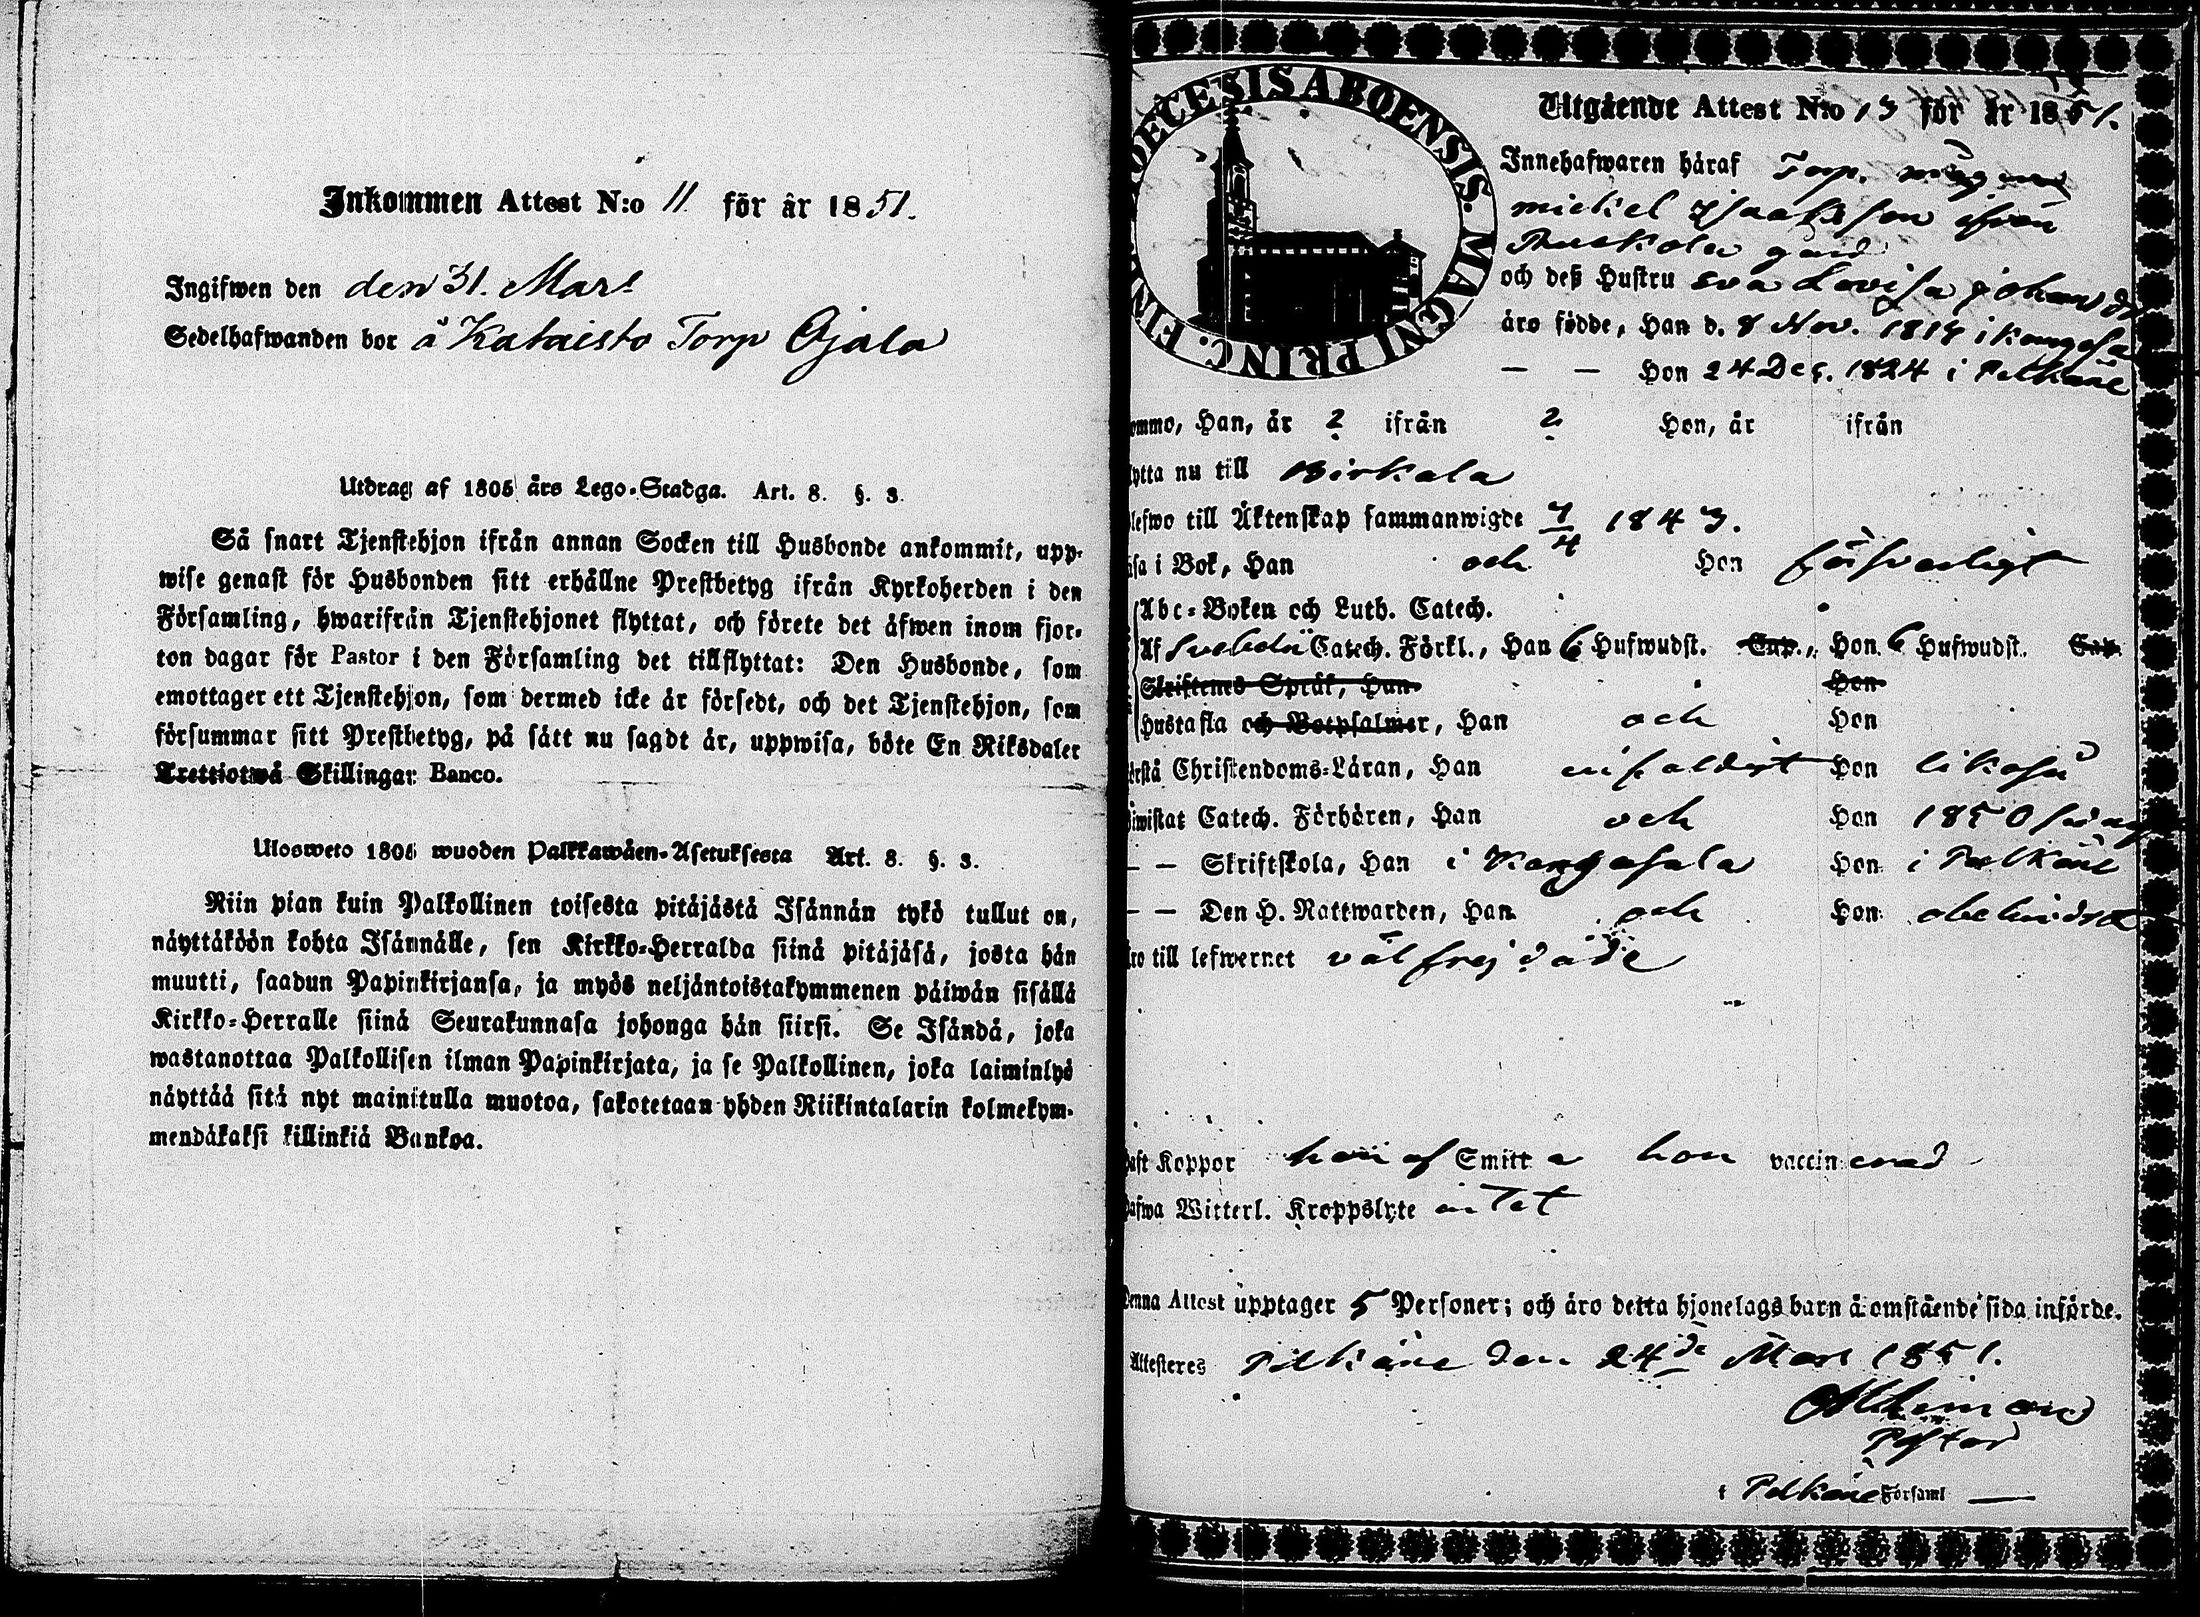 Inkommen Attest N:o 11. för år 1851.
Ingifwen den den 31. Mars
Sedelhafwanden bor å Kataisto Torp Ojala
Utdrag af 1805 års Lego-Stadga. Art. 8. §. 3.
Så snart Tjenstehjon ifrån annan Socken till Husbonde ankommit, upp-
wise genast för Husbonden sitt erhållne Prestbetyg ifrån Kyrkoherden i den
Församling, hwarifrån Tjenstehjonet flyttat, och förete det äfwen inom fjor-
ton dagar för Pastor i den Församling det tillflyttat: Den Husbonde, som
emottager ett Tjenstehjon, som dermed icke är försedt, och det Tjenstehjon, som
försummar sitt Prestbetyg, på sätt nu sagdt är, uppwisa, böte En Riksdaler
Trettiotwå Skillingar Banco.
Ulosweto 1805 wuoden Palkkawäen-Asetuksesta Art. 8. §. 3.
Niin pian kuin Palkollinen toisesta pitäjästä Isännän tykö tullut on,
näyttäköön kohta Isännälle, sen Kirkko-Herralda siinä pitäjäsä, josta hän
muutti, saadun Papinkirjansa, ja myös neljäntoistakymmenen päiwän sisällä
Kirkko-Herralle siinä Seurakunnasa johonga hän siirsi. Se Isändä, joka
wastanottaa Palkollisen ilman Papinkirjata, ja se Palkollinen, joka laiminlyö
näyttää sitä nyt mainitulla muotoa, sakotetaan yhden Riikintalarin kolmekym-
mendäkaksi killinkiä Bankoa.
DIOECESIS ABOENSIS. MAGNI PRINC. FIN
Utgående Attest N:o 13 för år 1851.
Innehafwaren häraf Torp. mågen
mickel Isaksson ifrån
gård
och deß Hustru Eva Lovisa Johansdr
äro födde, Han d. 8 Nov. 1818 i Kangasala
— — Hon 24 Dec. 1824 i Pelkäne
ommo, Han, år 2 ifrån 2 Hon, år ifrån
lytta nu till Birkala
lefwo till Äktenskap sammanwigde 7/4 1843.
äsa i Bok, Han och Hon försvarligt
Abc-Boken och Luth. Catech.
Af Svebelii Catech. Förkl., Han 6 Hufwudst. Cap., Hon 6 Hufwudst. Cap.
Skriftenes Språk, Han Hon
Hustafla och Botpsalmer, Han och Hon
örstå Christendoms-Läran, Han enfaldigt Hon likaså
iwistat Catech. Förhören, Han och Hon 1850
— — Skriftskola, Han i Kangasala Hon i Pelkäne
— — Den H. Nattwarden, Han och Hon obehindrat
äro till lefwernet välfrejdade
haft Koppor han af Smitta hon vaccinerad
hafwa Witterl. Kroppslyte intet
Denna Attest upptager 5 Personer; och äro detta hjonelags barn å omstående sida införde.
Attesteres Pelkäne den 24de Mars 1851.
Pastor
i Pelkäne Församl